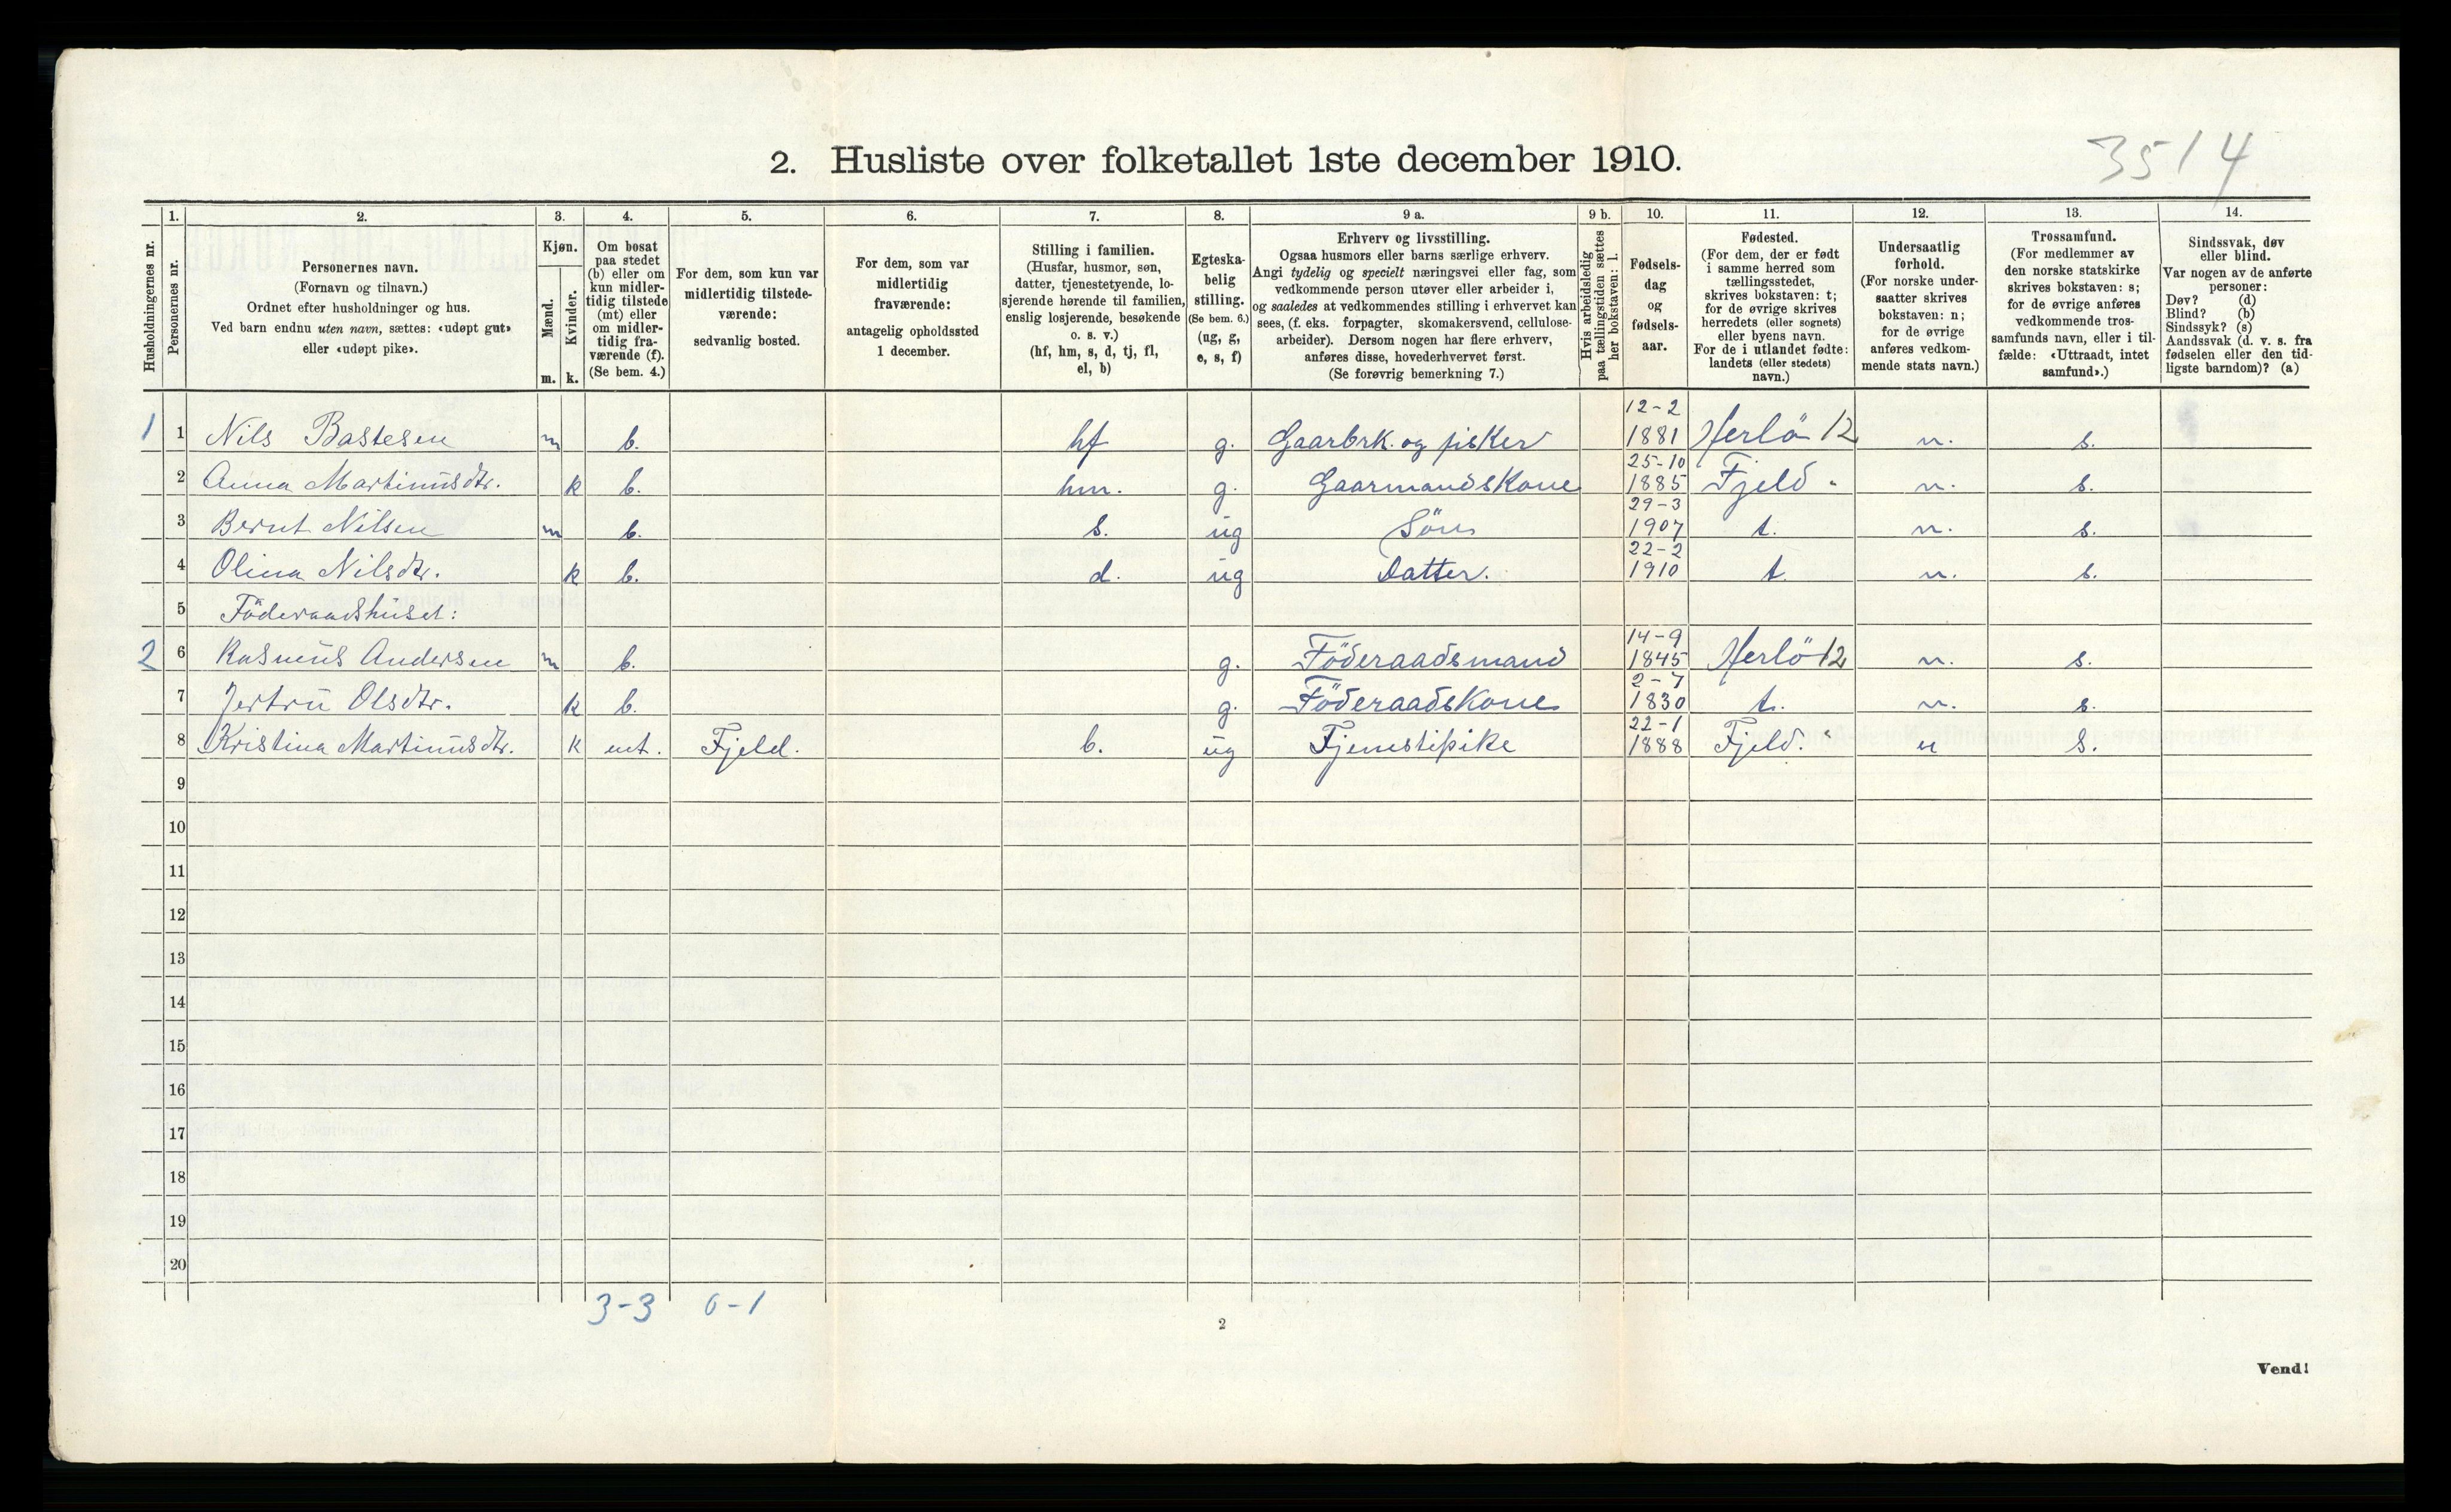 3514
2. Husliste over folketallet 1ste december 1910.
Husholdningernes nr.
1. Personernes nr.
2. Personernes navn.
(Fornavn og tilnavn.)
Ordnet efter husholdninger og hus.
Ved barn endnu uten navn, sættes: «udøpt gut»
eller «udøpt pike».
3. Kjøn.
Mænd. m.
Kvinder. k.
4. Om bosat
paa stedet
(b) eller om
kun midler-
tidig tilstede
(mt) eller
om midler-
tidig fra-
værende (f).
(Se bem. 4.)
5. For dem, som kun var
midlertidig tilstede-
værende:
sedvanlig bosted.
6. For dem, som var
midlertidig
fraværende:
antagelig opholdssted
1 december.
7. Stilling i familien.
(Husfar, husmor, søn,
datter, tjenestetyende, lo-
sjerende hørende til familien,
enslig losjerende, besøkende
o. s. v.)
(hf, hm, s, d, tj, fl,
el, b)
8. Egteska-
belig
stilling.
(Se bem. 6.)
(ug, g,
e, s, f)
9 a. Erhverv og livsstilling.
Ogsaa husmors eller barns særlige erhverv.
Angi tydelig og specielt næringsvei eller fag, som
vedkommende person utøver eller arbeider i,
og saaledes at vedkommendes stilling i erhvervet kan
sees, (f. eks. forpagter, skomakersvend, cellulose-
arbeider). Dersom nogen har flere erhverv,
anføres disse, hovederhvervet først.
(Se forøvrig bemerkning 7.)
9 b. Hvis arbeidsledig
paa tællingstiden sættes
her bokstaven: l.
10. Fødsels-
dag
og
fødsels-
aar.
11. Fødested.
(For dem, der er født
i samme herred som
tællingsstedet,
skrives bokstaven: t;
for de øvrige skrives
herredets (eller sognets)
eller byens navn.
For de i utlandet fødte:
landets (eller stedets)
navn.)
12. Undersaatlig
forhold.
(For norske under-
saatter skrives
bokstaven: n;
for de øvrige
anføres vedkom-
mende stats navn.)
13. Trossamfund.
(For medlemmer av
den norske statskirke
skrives bokstaven: s;
for de øvrige anføres
vedkommende tros-
samfunds navn, eller i til-
fælde: «Uttraadt, intet
samfund».)
14. Sindssvak, døv
eller blind.
Var nogen av de anførte
personer:
Døv? (d)
Blind? (b)
Sindssyk? (s)
Aandssvak (d. v. s. fra
fødselen eller den tid-
ligste barndom)? (a)
1 1 Nils Bastesen m b. hf g. Gaarbrk. og fisker 12-2 1881 Herlö 12 n. s.
2 Anna Martinusdtr. k b. hm. g. Gaarmandskone 25-10 1885 Fjeld " n. s.
3 Bernt Nilsen m b. s. ug Sön 29-3 1907 t. n. s.
4 Olina Nilsdtr. k b. d. ug Datter. 22-2 1910 t. n. s.
5 Föderaadshuset:
2 6 Rasmus Andersen m b. g. Föderaadsmand 14-9 1845 Herlö 12 n. s.
7 Jertru Olsdtr. k b. g. Föderaadskone 2-7 1830 t. n. s.
8 Kristina Martinusdtr. k mt. Fjeld. b. ug Tjenestipike 22-1 1888 Fjeld. " n s.
9
10
11
12
13
14
15
16
17
18
19
20
3-3 0-1
2
Vend!